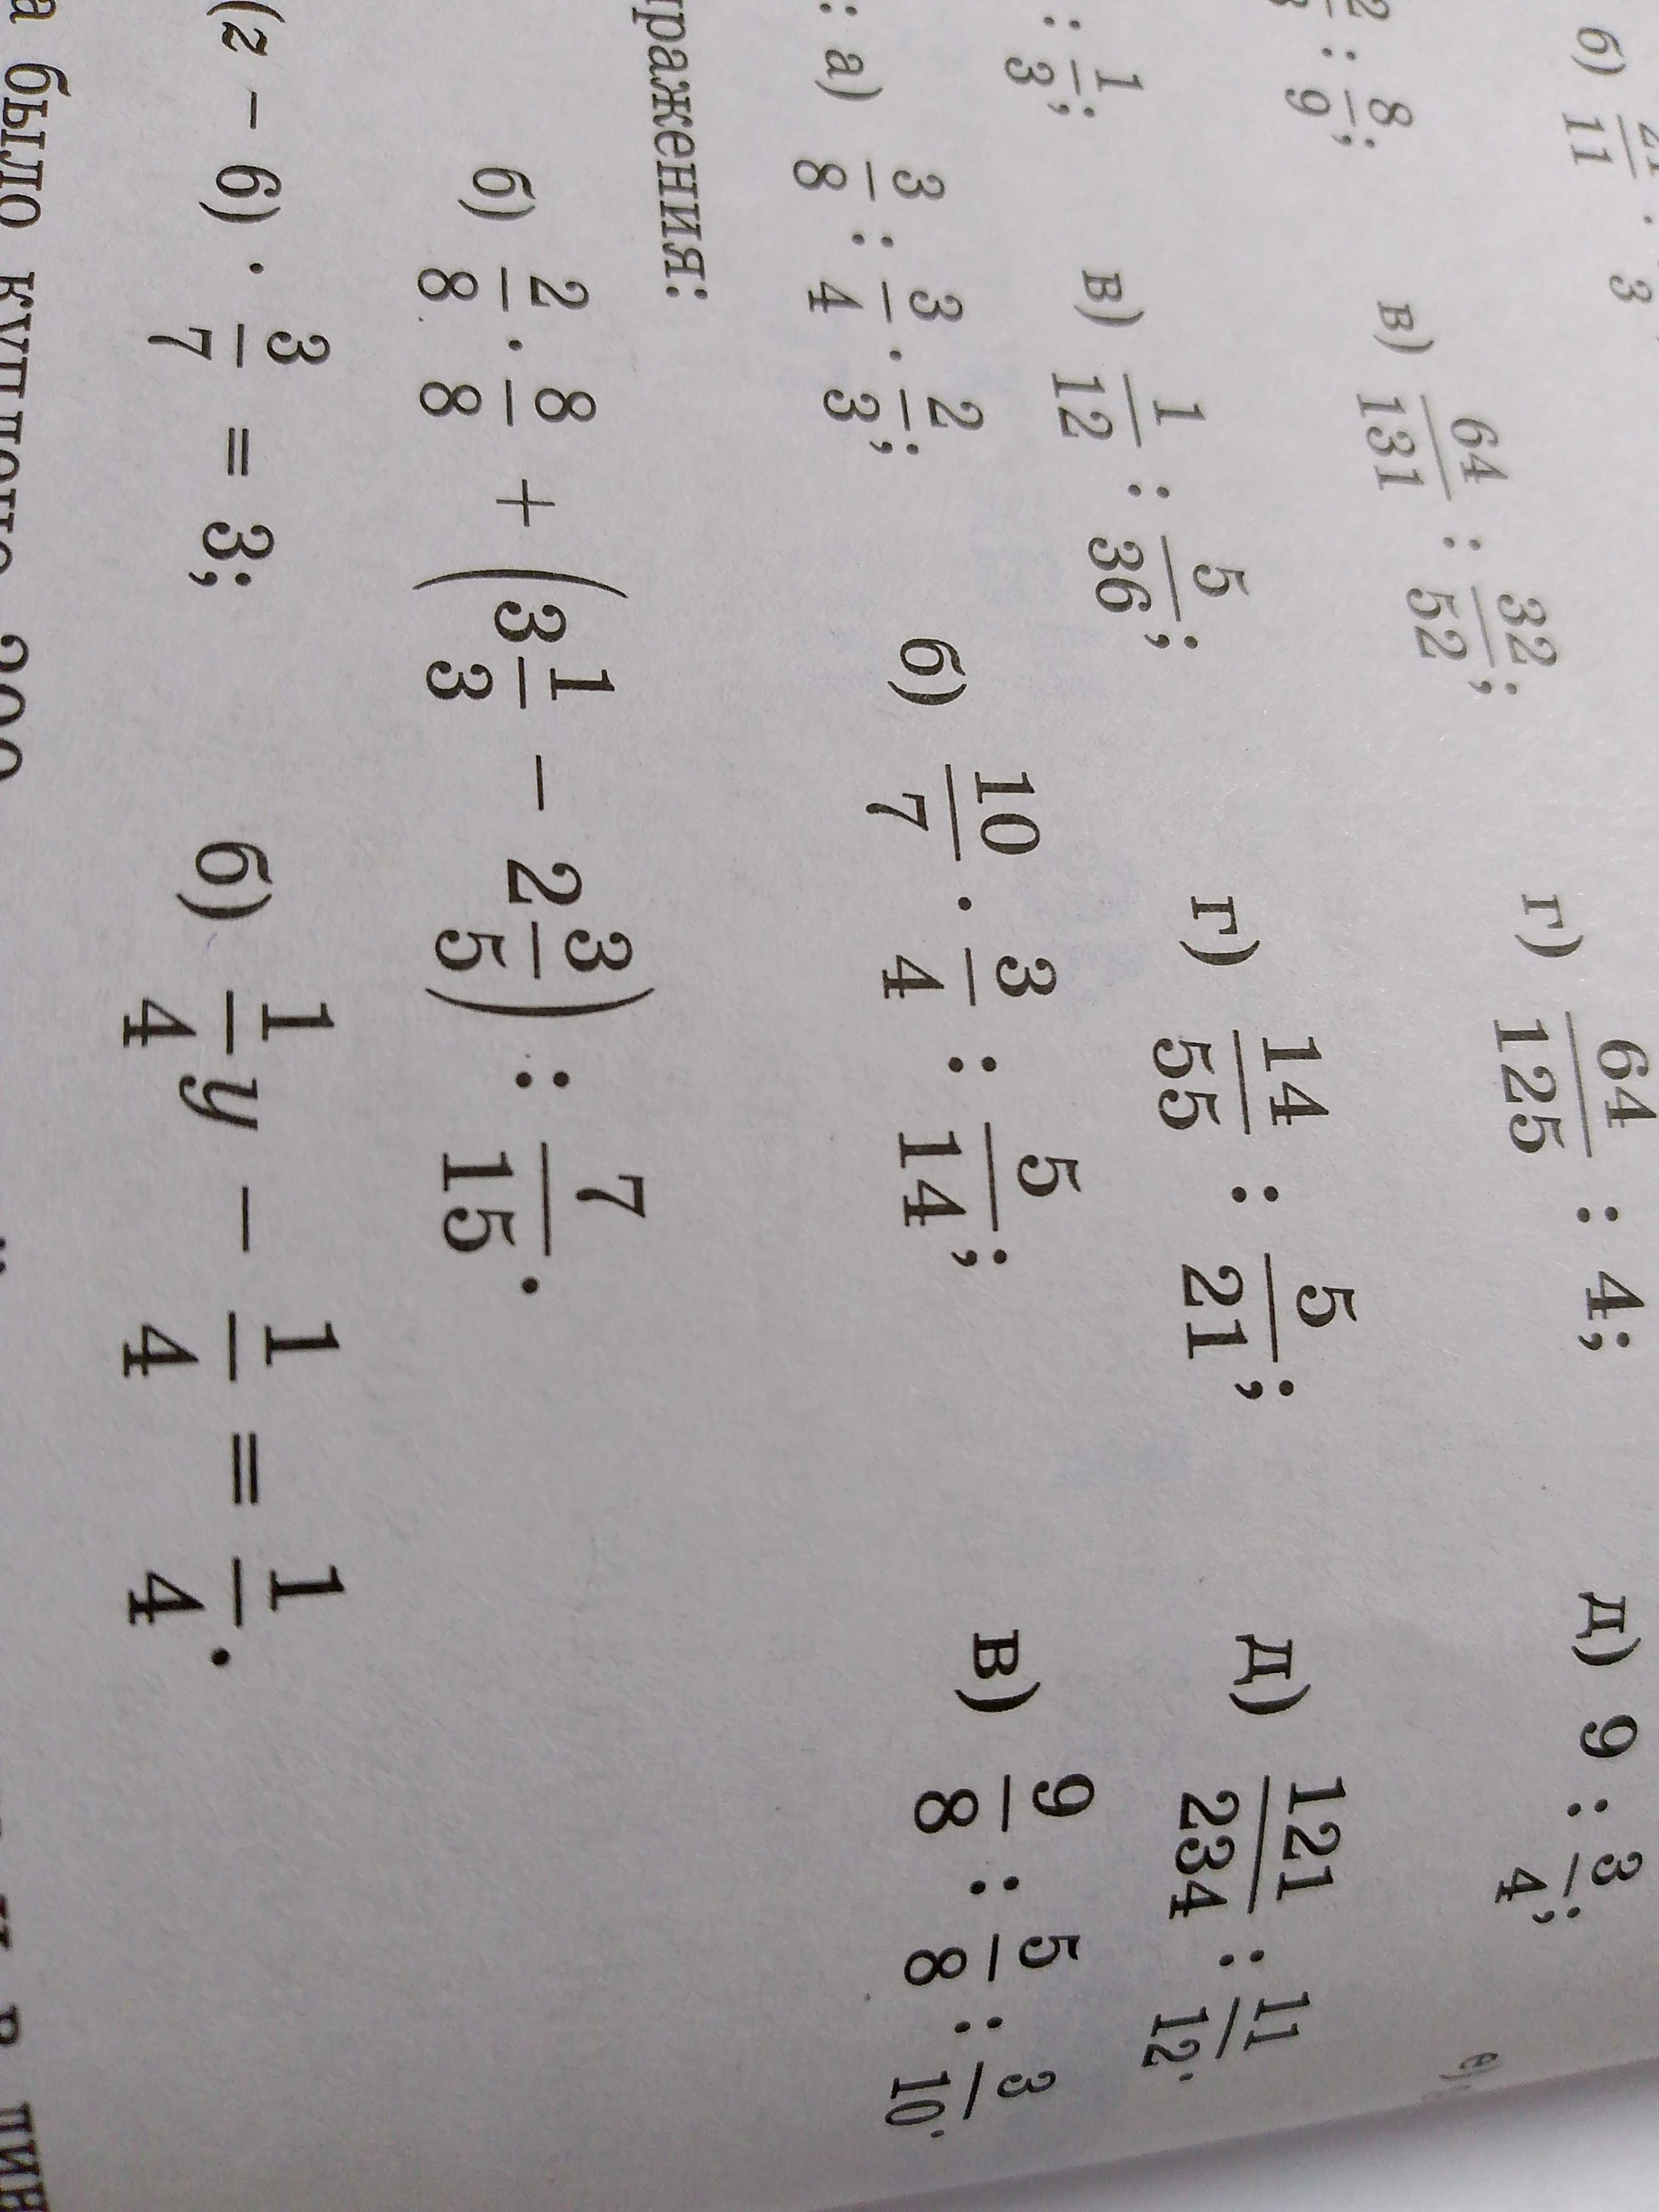 б) 21/11 · 3
2 : 8/9; в) 64/131 : 32/52; г) 64/125 : 4; д) 9 : 3/4;
: 1/3; в) 1/12 : 5/36; г) 14/55 : 5/21; д) 121/234 : 11/12.
: а) 3/8 : 3/4 · 2/3; б) 10/7 · 3/4 : 5/14; в) 9/8 : 5/8 : 3/10.
ражения:
б) 2/8 · 8/8 + (3 1/3 − 2 3/5) : 7/15.
(z − 6) · 3/7 = 3; б) 1/4 y − 1/4 = 1/4.
а было куплено 200